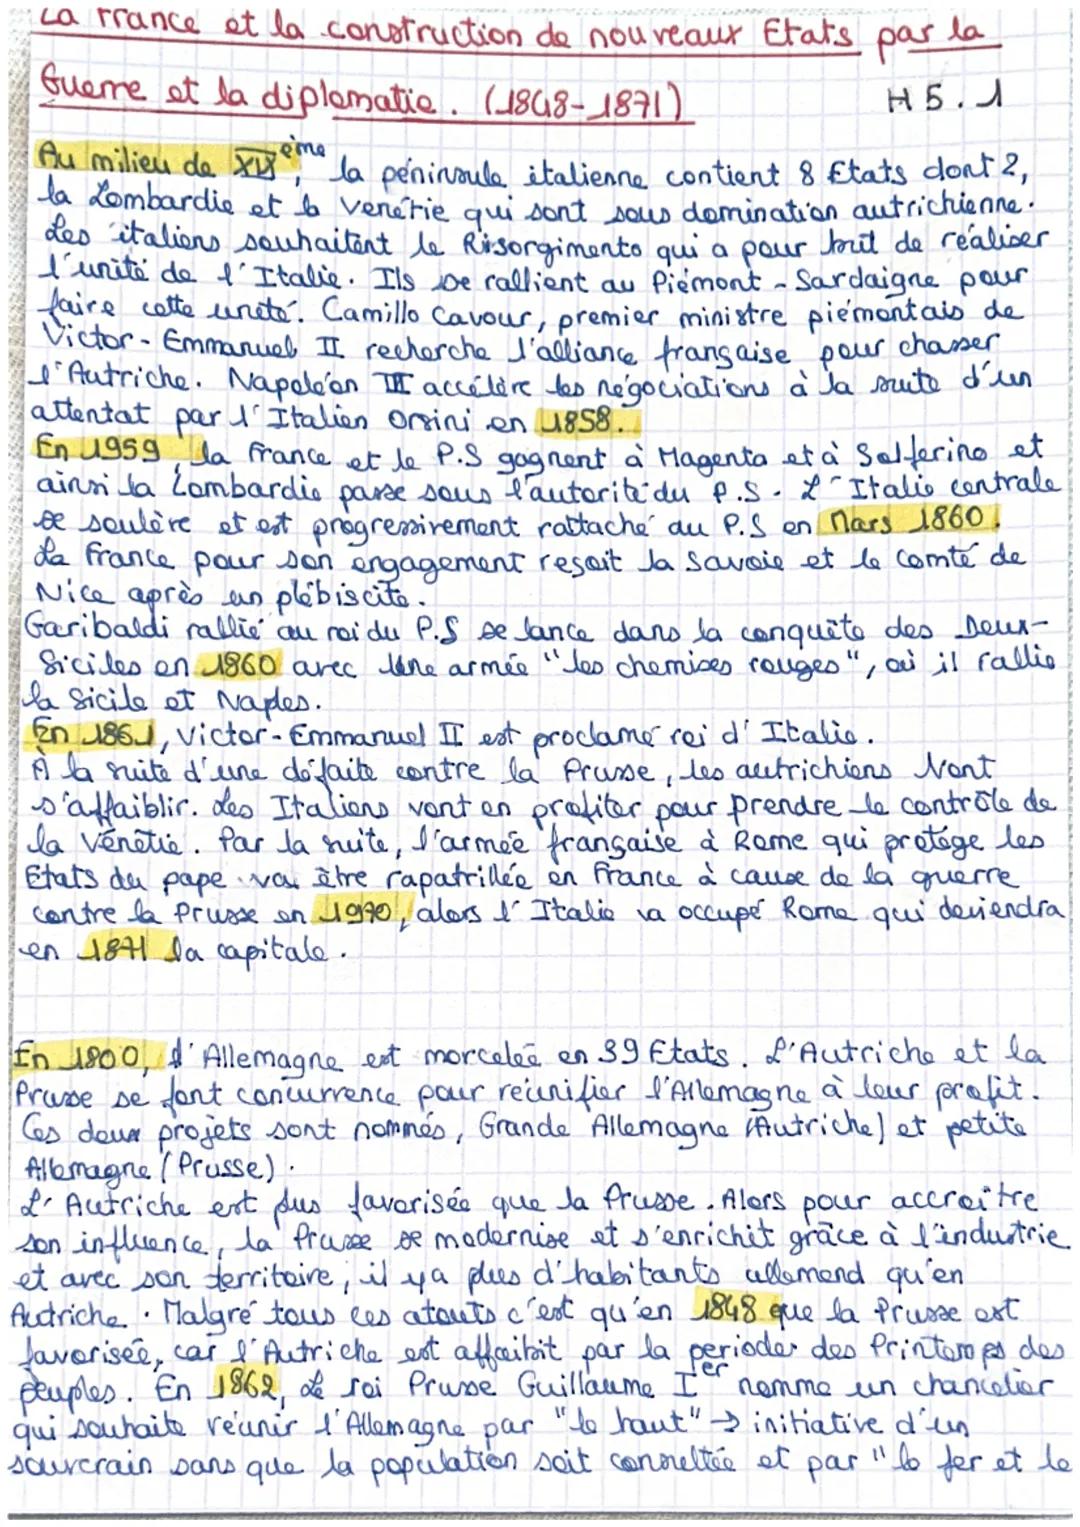 La France et la construction de nouveaux Etats par la
Guerre et la diplomatie. (1848-1871)
H5.1
Au milieu de XIXème, la péninsule italienne contient 8 Etats dont 2,
la Lombardie et la Venétie qui sont sous domination autrichienne.
Les italiens souhaitent le Risorgimento qui a pour but de réaliser
l'unité de l'Italie. Ils se rallient au Piémont-Sardaigne pour
faire cette uneté. Camillo Cavour, premier ministre piémontais de
Victor-Emmanuel II recherche l'alliance française pour chasser
l'Autriche. Napoléon III accélère les négociations à la suite d'un
attentat par l'Italien Orsini en 1858.
En 1959, la France et le P.S gagnent à Magenta et à Solferino et
ainsi la Lombardie passe sous l'autorité du P.S. L'Italie centrale
se soulève et est progressivement rattaché au P.S en Mars 1860.
La France pour son engagement reçoit la Savoie et le comté de
Nice après un plébiscite.
Garibaldi rallié au roi du P.S se lance dans la conquête des Deux-
Siciles en 1860 avec une armée "les chemises rouges", où il rallie
la Sicile et Naples.
En 1861, Victor-Emmanuel II est proclamé roi d'Italie.
À la suite d'une défaite contre la Prusse, les autrichiens vont
s'affaiblir. Les Italiens vont en profiter pour prendre le contrôle de
la Vénétie. Par la suite, l'armée française à Rome qui protège les
Etats du pape va être rapatrillée en France à cause de la guerre
contre la Prusse en 1970, alors l'Italie va occupé Rome qui deviendra
en 1871 la capitale.
En 1800, l'Allemagne est morcelée en 39 Etats. L'Autriche et la
Prusse se font concurrence pour réunifier l'Allemagne à leur profit.
Ces deux projets sont nommés, Grande Allemagne (Autriche) et petite
Allemagne (Prusse).
L'Autriche est plus favorisée que la Prusse. Alors pour accroître
son influence, la Prusse se modernise et s'enrichit grâce à l'industrie
et avec son territoire, il y a plus d'habitants allemand qu'en
Autriche. Malgré tous ces atouts c'est qu'en 1848 que la Prusse est
favorisée, car l'Autriche est affaiblit par la periode des Printemps des
peuples. En 1862, Le roi Prusse Guillaume Ier nomme un chancelier
qui souhaite réunir l'Allemagne par "le haut" → initiative d'un
souverain sans que la population soit consultée et par "le fer et le